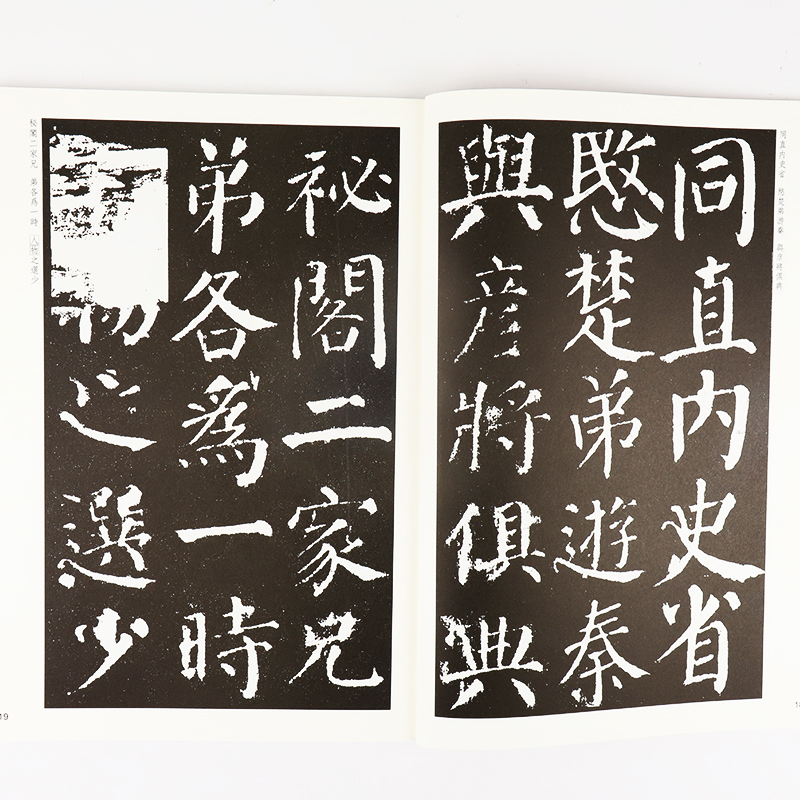 同直内史省 愍楚弟遊秦 與彦將俱典
同直内史省
愍楚弟遊秦
與彦將俱典
祕閣二家兄
弟各爲一時
物之選少
秘閣二家兄 弟各爲一時 人物之選少
19